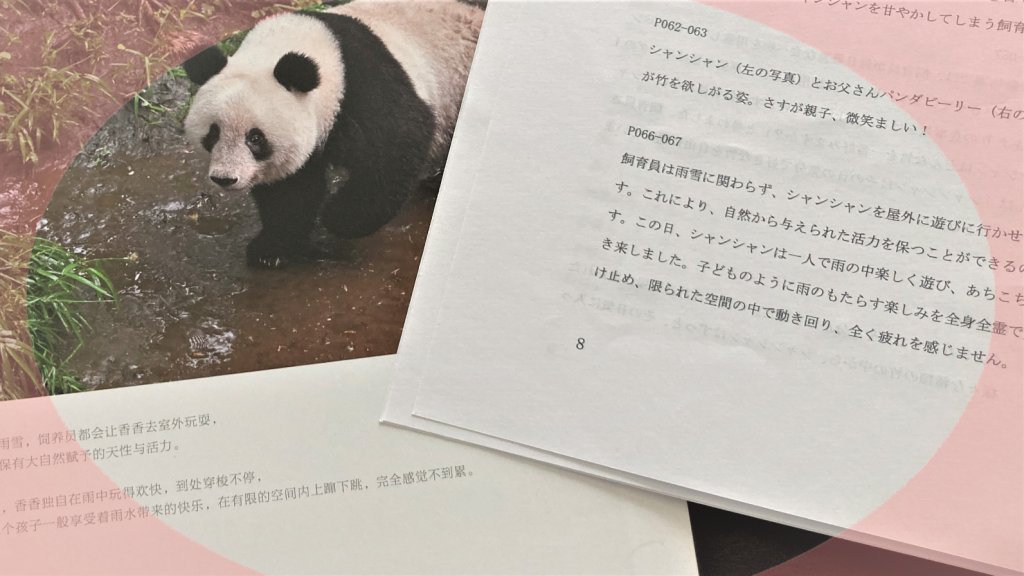 ンシャンを甘やかしてしまう飼育
P062-063
シャンシャン（左の写真）とお父さんパンダビーリー（右の
が竹を欲しがる姿。さすが親子、微笑ましい！
P066-067
飼育員は雨雪に関わらず、シャンシャンを屋外に遊びに行かせ
す。これにより、自然から与えられた活力を保つことができるの
す。この日、シャンシャンは一人で雨の中楽しく遊び、あちこち
き来しました。子どものように雨のもたらす楽しみを全身全霊で
け止め、限られた空間の中で動き回り、全く疲れを感じません。
8
雨雪，饲养员都会让香香去室外玩耍，
保有大自然赋予的天性与活力。
，香香独自在雨中玩得欢快，到处穿梭不停，
个孩子一般享受着雨水带来的快乐，在有限的空间内上蹿下跳，完全感觉不到累。